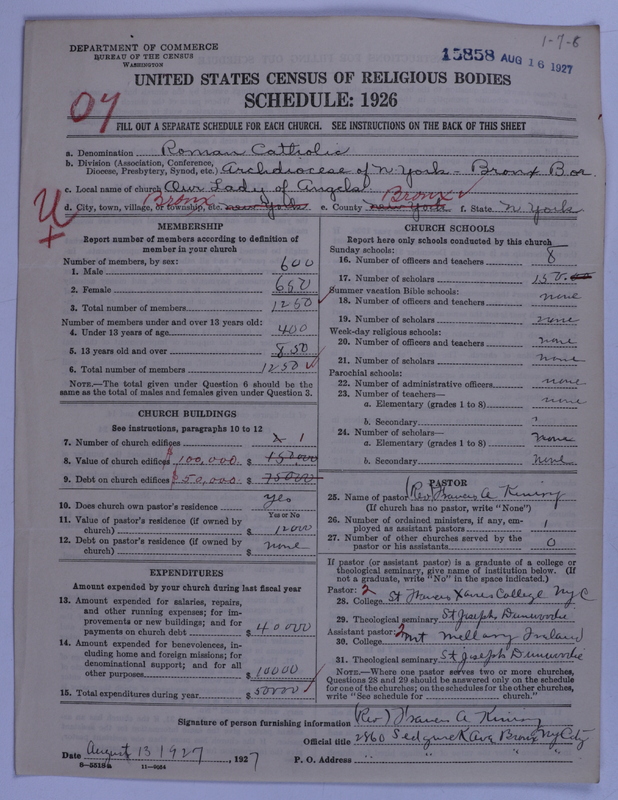 1-7-8
DEPARTMENT OF COMMERCE
BUREAU OF THE CENSUS
WASHINGTON
15858 AUG 16 1927
UNITED STATES CENSUS OF RELIGIOUS BODIES
SCHEDULE: 1926
FILL OUT A SEPARATE SCHEDULE FOR EACH CHURCH. SEE INSTRUCTIONS ON THE BACK OF THIS SHEET
a. Denomination Roman Catholic
b. Division (Association, Conference, Diocese, Presbytery, Synod, etc.) Archdiocese of N York - Bronx Bor
c. Local name of church Our Lady of Angels
d. City, town, village, or township, etc. New York Bronx e. County New York Bronx f. State N York
MEMBERSHIP
Report number of members according to definition of
member in your church
Number of members, by sex:
1. Male 600
2. Female 650
3. Total number of members 1250
Number of members under and over 13 years old:
4. Under 13 years of age 400
5. 13 years old and over 850
6. Total number of members 1250
NOTE.—The total given under Question 6 should be the
same as the total of males and females given under Question 3.
CHURCH BUILDINGS
See instructions, paragraphs 10 to 12
7. Number of church edifices 1
8. Value of church edifices $100,000. $
9. Debt on church edifices $50,000. $ 75000
10. Does church own pastor's residence? yes
Yes or No
11. Value of pastor's residence (if owned by
church) $ 12000
12. Debt on pastor's residence (if owned by
church) $ none
EXPENDITURES
Amount expended by your church during last fiscal year
13. Amount expended for salaries, repairs,
and other running expenses; for im-
provements or new buildings; and for
payments on church debt $ 40000
14. Amount expended for benevolences, in-
cluding home and foreign missions; for
denominational support; and for all
other purposes $ 10000
15. Total expenditures during year $ 50000
CHURCH SCHOOLS
Report here only schools conducted by this church
Sunday schools:
16. Number of officers and teachers 8
17. Number of scholars 150.00
Summer vacation Bible schools:
18. Number of officers and teachers none
19. Number of scholars none
Week-day religious schools:
20. Number of officers and teachers none
21. Number of scholars none
Parochial schools:
22. Number of administrative officers none
23. Number of teachers—
a. Elementary (grades 1 to 8) none
b. Secondary
24. Number of scholars—
a. Elementary (grades 1 to 8) none
b. Secondary none
PASTOR
25. Name of pastor (Rev) Francis A
(If church has no pastor, write "None")
26. Number of ordained ministers, if any, em-
ployed as assistant pastors 1
27. Number of other churches served by the
pastor or his assistants 0
If pastor (or assistant pastor) is a graduate of a college or
theological seminary, give name of institution below. (If
not a graduate, write "No" in the space indicated.)
Pastor: 2
28. College St Francis Xavier College NYC
29. Theological seminary St Josephs Dunwoodie
Assistant pastor: 2
30. College Mt Mellary Ireland
31. Theological seminary St Joseph Dunwoodie
NOTE.—Where one pastor serves two or more churches,
Questions 28 and 29 should be answered only on the schedule
for one of the churches; on the schedules for the other churches,
write "See schedule for church."
Signature of person furnishing information (Rev) Francis A
Official title 2860 Sedgwick Ave Bronx NY City
Date August 13 1927, 1927 P. O. Address " " "
8-5518a 11-9064